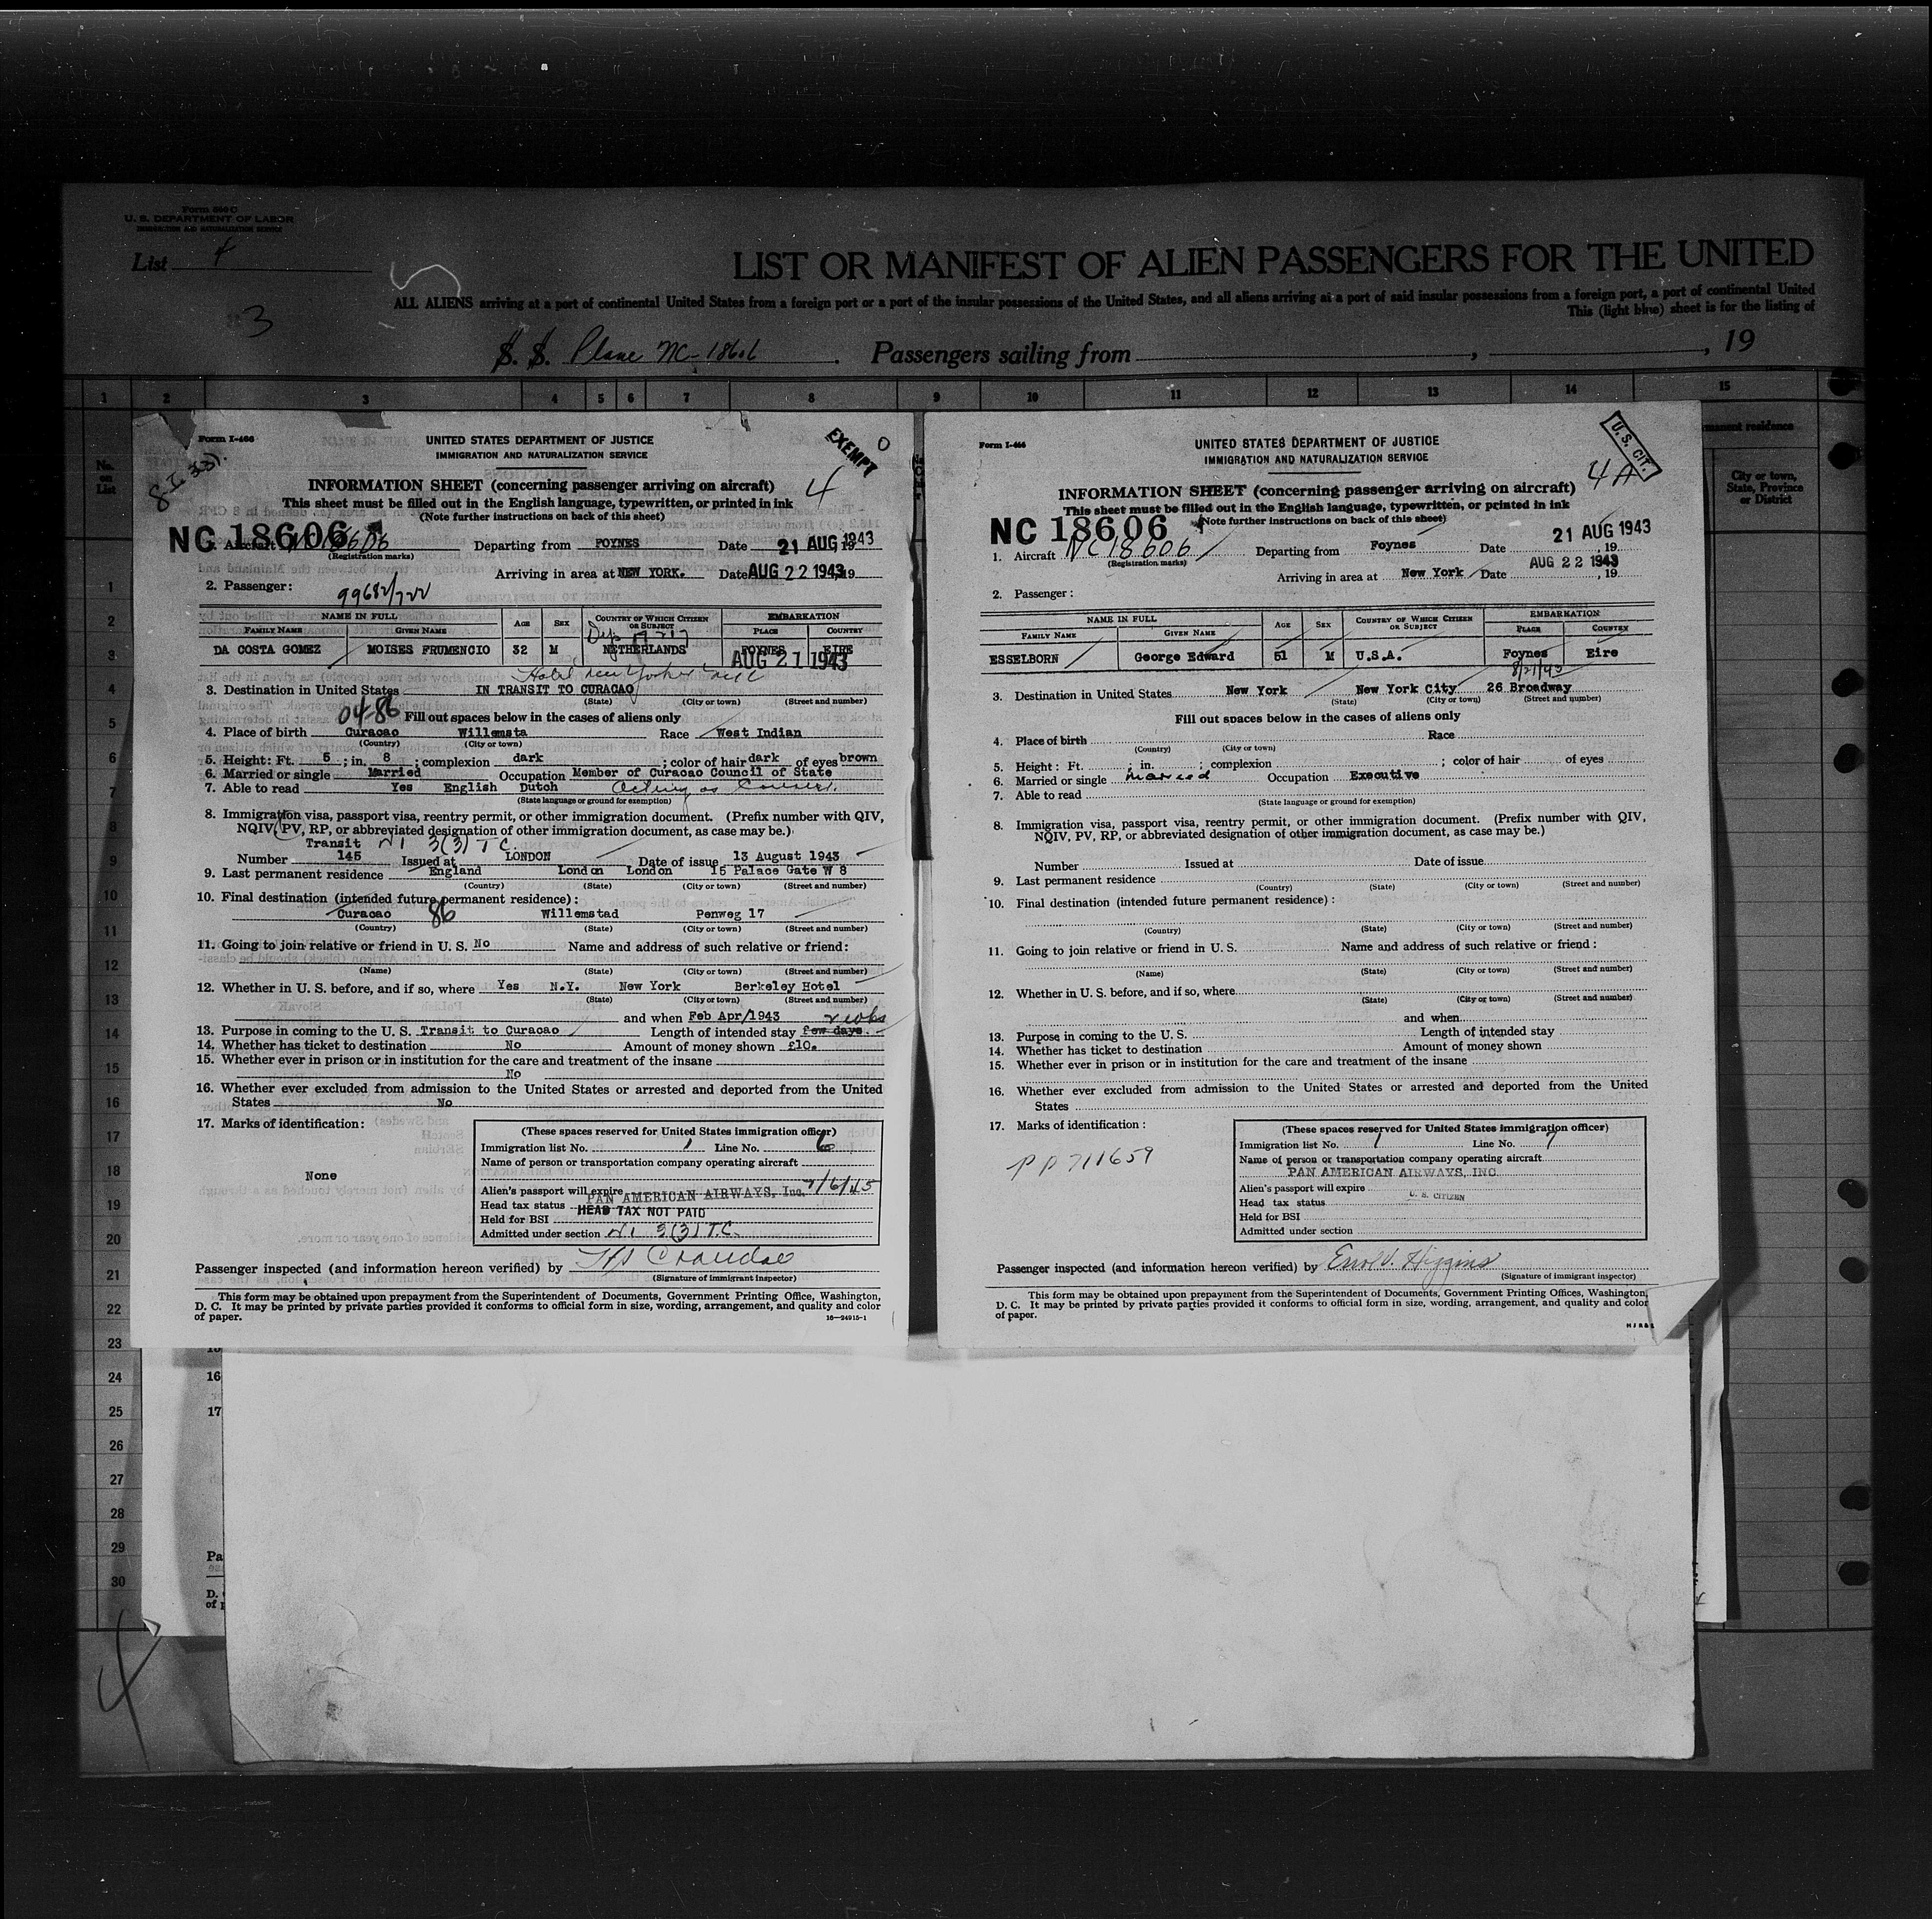 Form 500 C
U. S. DEPARTMENT OF LABOR
IMMIGRATION AND NATURALIZATION SERVICE
List 4
3
LIST OR MANIFEST OF ALIEN PASSENGERS FOR THE UNITED
ALL ALIENS arriving at a port of continental United States from a foreign port or a port of the insular possessions of the United States, and all aliens arriving at a port of said insular possessions from a foreign port, a port of continental United
This (light blue) sheet is for the listing of
S. S. Plane NC-18606. Passengers sailing from , , 19
1 2 3 4 5 6 7 8 9 10 11 12 13 14 15
No. on List
manent residence
City or town, State, Province or District
Form I-466
UNITED STATES DEPARTMENT OF JUSTICE
IMMIGRATION AND NATURALIZATION SERVICE
EXEMPT
4
INFORMATION SHEET (concerning passenger arriving on aircraft)
This sheet must be filled out in the English language, typewritten, or printed in ink
(Note further instructions on back of this sheet)
NC 18606
1. Aircraft NC 18606 Departing from FOYNES Date 21 AUG 1943, 19
(Registration marks)
Arriving in area at NEW YORK. Date AUG 22 1943, 19
2. Passenger: 99682/722
NAME IN FULL AGE SEX COUNTRY OF WHICH CITIZEN OR SUBJECT EMBARKATION
FAMILY NAME GIVEN NAME PLACE COUNTRY
DA COSTA GOMEZ MOISES FRUMENCIO 32 M NETHERLANDS FOYNES EIRE
AUG 21 1943
Hotel New Yorker NYC
3. Destination in United States IN TRANSIT TO CURACAO
(State) (City or town) (Street and number)
04-86 Fill out spaces below in the cases of aliens only
4. Place of birth Curacao Willemsta Race West Indian
(Country) (City or town)
5. Height: Ft. 5; in. 8; complexion dark; color of hair dark of eyes brown
6. Married or single Married Occupation Member of Curacao Council of State
7. Able to read Yes English Dutch Acting as
(State language or ground for exemption)
8. Immigration visa, passport visa, reentry permit, or other immigration document. (Prefix number with QIV,
NQIV, PV, RP, or abbreviated designation of other immigration document, as case may be.)
Transit NI 3(3) T C.
Number 145 Issued at LONDON Date of issue 13 August 1943
9. Last permanent residence England London London 15 Palace Gate W 8
(Country) (State) (City or town) (Street and number)
10. Final destination (intended future permanent residence):
Curacao 86 Willemstad Penweg 17
(Country) (State) (City or town) (Street and number)
11. Going to join relative or friend in U. S. No Name and address of such relative or friend:
(Name) (State) (City or town) (Street and number)
12. Whether in U. S. before, and if so, where Yes N.Y. New York Berkeley Hotel
(State) (City or town) (Street and number)
and when Feb Apr/1943 2 wks
13. Purpose in coming to the U. S. Transit to Curacao Length of intended stay few days.
14. Whether has ticket to destination No Amount of money shown £10.
15. Whether ever in prison or in institution for the care and treatment of the insane
No
16. Whether ever excluded from admission to the United States or arrested and deported from the United
States No
17. Marks of identification:
None
(These spaces reserved for United States immigration officer)
Immigration list No. 1 Line No. 6
Name of person or transportation company operating aircraft
Alien's passport will expire 7/6/45
PAN AMERICAN AIRWAYS, Inc.
Head tax status HEAD TAX NOT PAID
Held for BSI
Admitted under section NI 3(3) T.C.
Passenger inspected (and information hereon verified) by
(Signature of immigrant inspector)
This form may be obtained upon prepayment from the Superintendent of Documents, Government Printing Office, Washington,
D. C. It may be printed by private parties provided it conforms to official form in size, wording, arrangement, and quality and color
of paper.
16—24915-1
Form I-466
UNITED STATES DEPARTMENT OF JUSTICE
IMMIGRATION AND NATURALIZATION SERVICE
U. S. CIT.
4A
INFORMATION SHEET (concerning passenger arriving on aircraft)
This sheet must be filled out in the English language, typewritten, or printed in ink
(Note further instructions on back of this sheet)
NC 18606
21 AUG 1943
1. Aircraft NC 18606 Departing from Foynes Date , 19
(Registration marks)
AUG 22 1943
Arriving in area at New York Date , 19
2. Passenger:
NAME IN FULL AGE SEX COUNTRY OF WHICH CITIZEN OR SUBJECT EMBARKATION
FAMILY NAME GIVEN NAME PLACE COUNTRY
ESSELBORN George Edward 51 M U.S.A. Foynes Eire
8/21/43
3. Destination in United States New York New York City 26 Broadway
(State) (City or town) (Street and number)
Fill out spaces below in the cases of aliens only
4. Place of birth Race
(Country) (City or town)
5. Height: Ft. ; in. ; complexion ; color of hair of eyes
6. Married or single married Occupation Executive
7. Able to read
(State language or ground for exemption)
8. Immigration visa, passport visa, reentry permit, or other immigration document. (Prefix number with QIV,
NQIV, PV, RP, or abbreviated designation of other immigration document, as case may be.)
Number Issued at Date of issue
9. Last permanent residence
(Country) (State) (City or town) (Street and number)
10. Final destination (intended future permanent residence):
(Country) (State) (City or town) (Street and number)
11. Going to join relative or friend in U. S. Name and address of such relative or friend:
(Name) (State) (City or town) (Street and number)
12. Whether in U. S. before, and if so, where
(State) (City or town) (Street and number)
and when
13. Purpose in coming to the U. S. Length of intended stay
14. Whether has ticket to destination Amount of money shown
15. Whether ever in prison or in institution for the care and treatment of the insane
16. Whether ever excluded from admission to the United States or arrested and deported from the United
States
17. Marks of identification:
PP 711659
(These spaces reserved for United States immigration officer)
Immigration list No. 1 Line No. 7
Name of person or transportation company operating aircraft
PAN AMERICAN AIRWAYS, INC.
Alien's passport will expire
Head tax status U. S. CITIZEN
Held for BSI
Admitted under section
Passenger inspected (and information hereon verified) by Errol V. Higgins
(Signature of immigrant inspector)
This form may be obtained upon prepayment from the Superintendent of Documents, Government Printing Offices, Washington,
D. C. It may be printed by private parties provided it conforms to official form in size, wording, arrangement, and quality and color
of paper.
1
2
3
4
5
6
7
8
9
10
11
12
13
14
15
16
17
18
19
20
21
22
23
24
25
26
27
28
29
30
16
17
Pa
D.
of
4